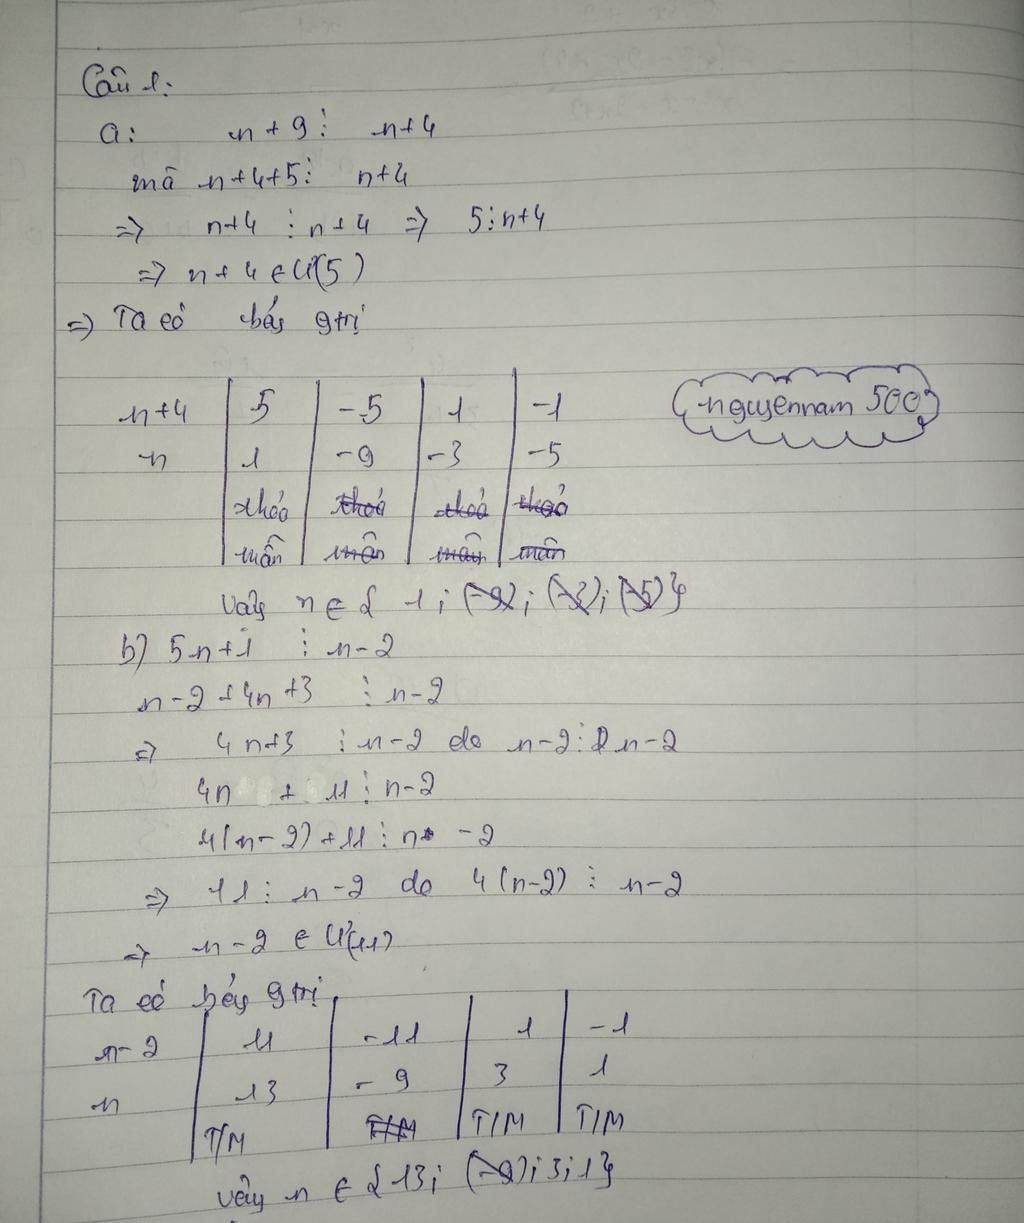 Câu 1:
a: n + 9 ⋮ n+4
mà n+4+5 ⋮ n+4
=> n+4 ⋮ n+4 => 5 ⋮ n+4
=> n + 4 ∈ Ư(5)
=> Ta có bảng gtrị
n+4 | 5 | -5 | 1 | -1
nguyennam 500
n | 1 | -9 | -3 | -5
thoả | thoả | thoả | thoả
mãn | mãn | mãn | mãn
Vậy n ∈ { 1 ; (-9) ; (-3) ; (-5) }
b) 5n+1 ⋮ n-2
n-2+4n+3 ⋮ n-2
=> 4n+3 ⋮ n-2 do n-2 ⋮ n-2
4n + 11 ⋮ n-2
4(n-2)+11 ⋮ n-2
=> 11 ⋮ n-2 do 4(n-2) ⋮ n-2
=> n-2 ∈ Ư(11)
Ta có bảng gtrị
n-2 | 11 | -11 | 1 | -1
n | 13 | -9 | 3 | 1
T/M | T/M | T/M | T/M
Vậy n ∈ { 13 ; (-9) ; 3 ; 1 }